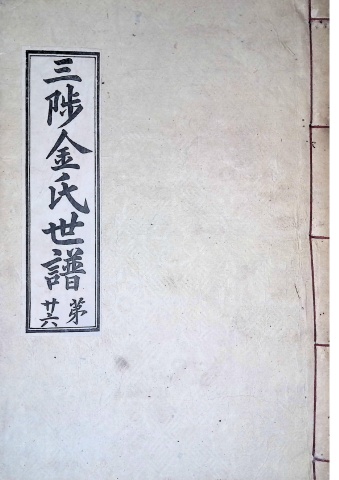 三陟金氏世譜
第廿六